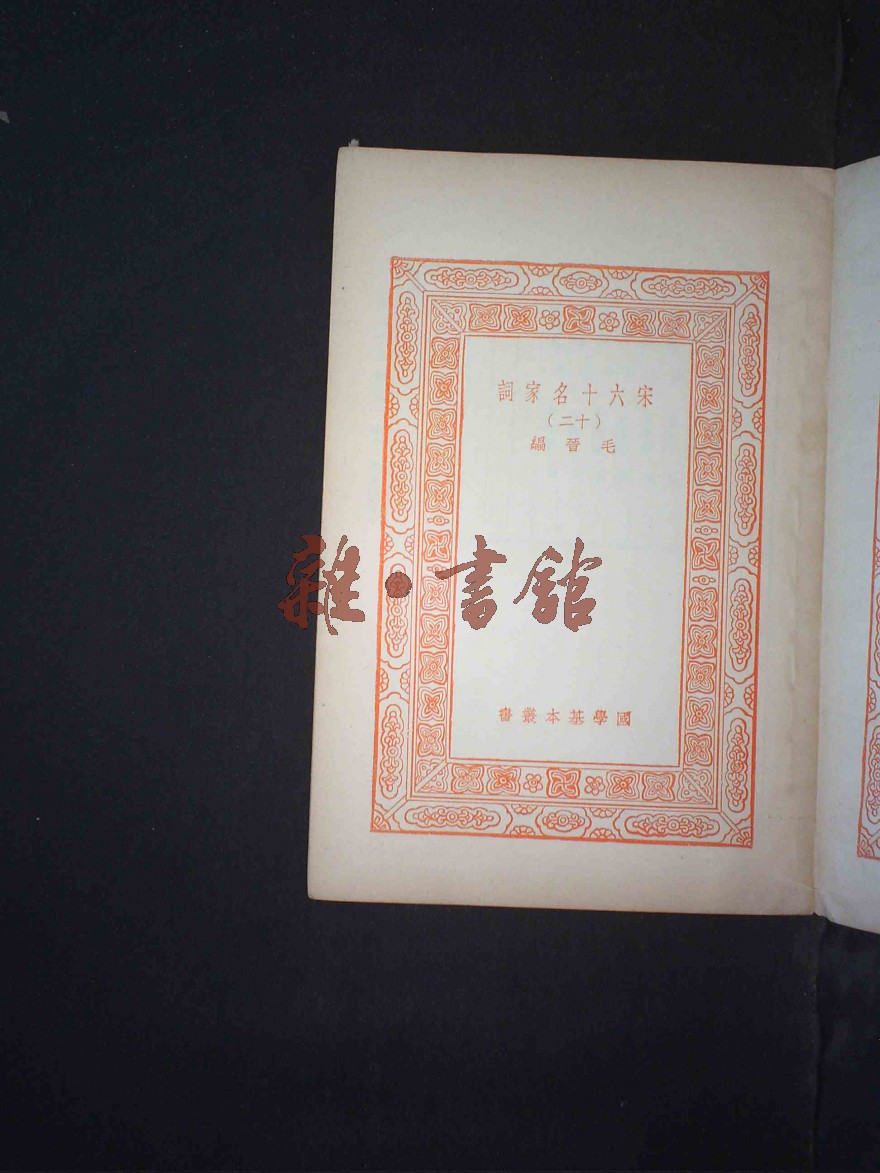 宋六十名家詞
(十二)
毛晉編
雜·書館
國學基本叢書